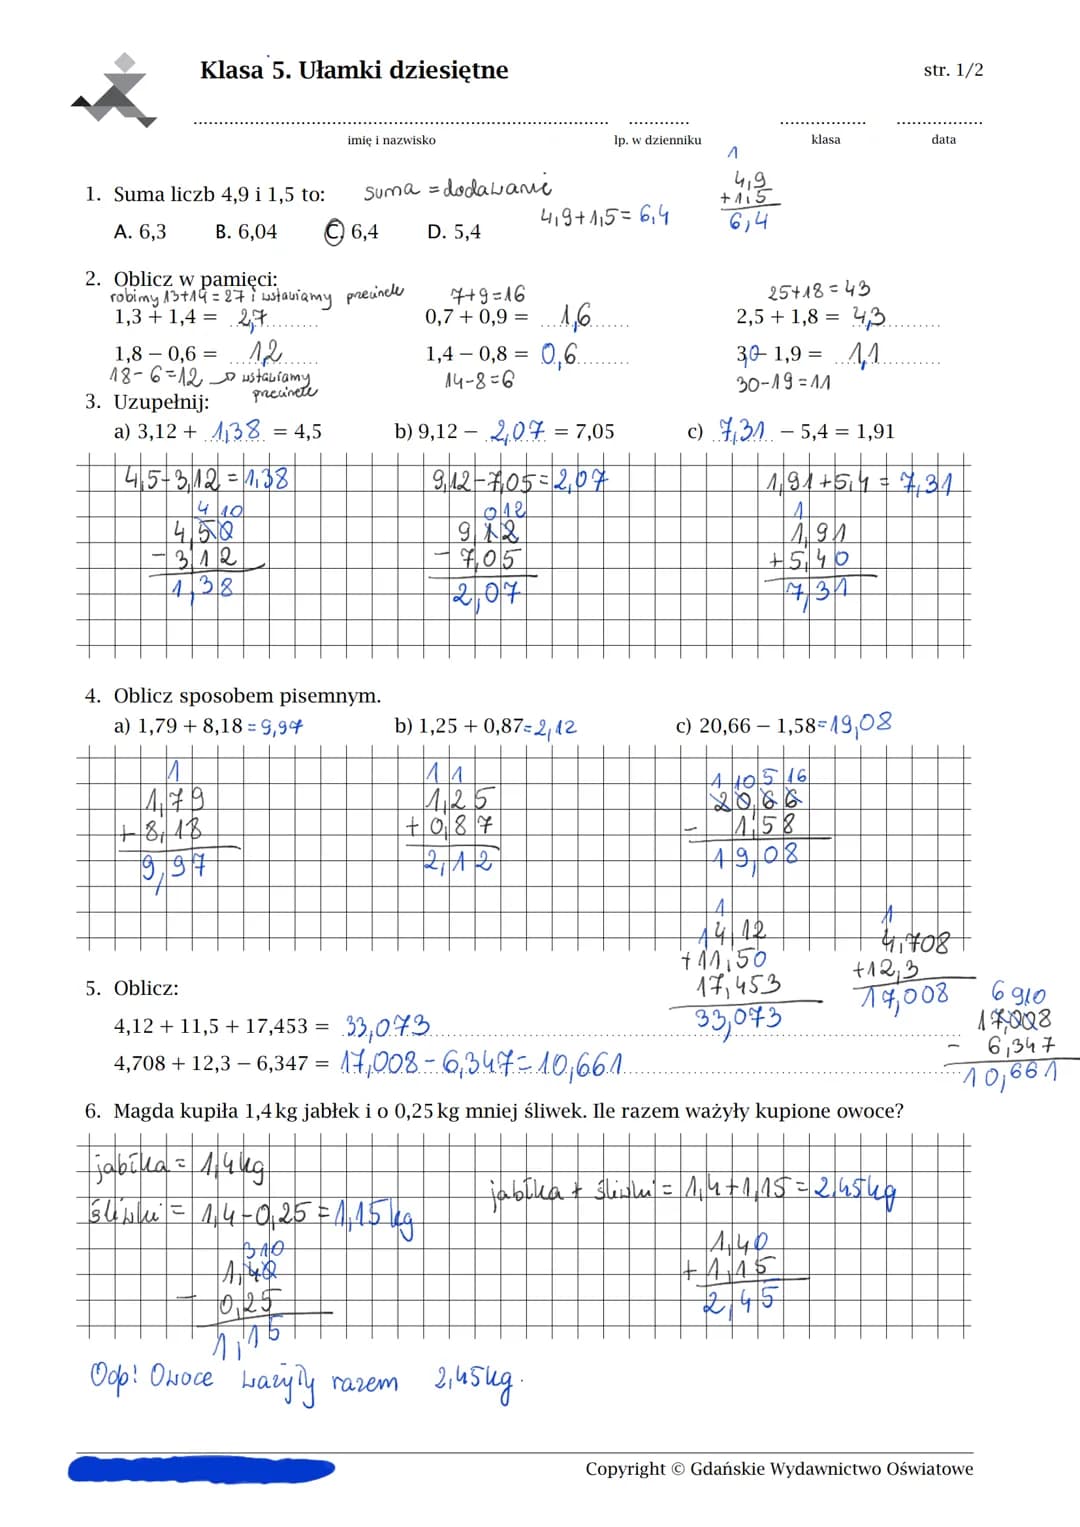 Klasa 5. Ułamki dziesiętne
str. 1/2
imię i nazwisko lp. w dzienniku klasa data
1. Suma liczb 4,9 i 1,5 to: suma = dodawanie
4,9+1,5= 6,4
A. 6,3 B. 6,04 C. 6,4 D. 5,4
1
4,9
+1,5
6,4
2. Oblicz w pamięci:
robimy 13+14=27 i wstawiamy przecinek
7+9=16
25+18=43
1,3 + 1,4 = 2,7 0,7 + 0,9 = 1,6 2,5 + 1,8 = 4,3
1,8 − 0,6 = 1,2 1,4 − 0,8 = 0,6 3,0 − 1,9 = 1,1
18-6=12 → wstawiamy przecinek
14-8=6
30-19=11
3. Uzupełnij:
a) 3,12 + 1,38 = 4,5 b) 9,12 − 2,07 = 7,05 c) 7,31 − 5,4 = 1,91
4,5-3,12=1,38 9,12-7,05=2,07 1,91+5,4=7,31
4 10
4,50
- 3,12
1,38
0 12
9,12
- 7,05
2,07
1
1,91
+5,40
7,31
4. Oblicz sposobem pisemnym.
a) 1,79 + 8,18 = 9,97 b) 1,25 + 0,87 = 2,12 c) 20,66 − 1,58 = 19,08
1
1,79
+ 8,18
9,97
1 1
1,25
+ 0,87
2,12
1 10 5 16
20,66
- 1,58
19,08
1
14,12
+11,50
17,453
33,073
1
4,708
+12,3
17,008
6 9 10
17,008
- 6,347
10,661
5. Oblicz:
4,12 + 11,5 + 17,453 = 33,073
4,708 + 12,3 − 6,347 = 17,008-6,347=10,661
6. Magda kupiła 1,4 kg jabłek i o 0,25 kg mniej śliwek. Ile razem ważyły kupione owoce?
jabłka = 1,4kg
śliwki = 1,4-0,25=1,15kg
jabłka + śliwki = 1,4+1,15=2,45kg
3 10
1,40
- 0,25
1,15
1,40
+ 1,15
2,45
Odp: Owoce ważyły razem 2,45kg.
Copyright © Gdańskie Wydawnictwo Oświatowe